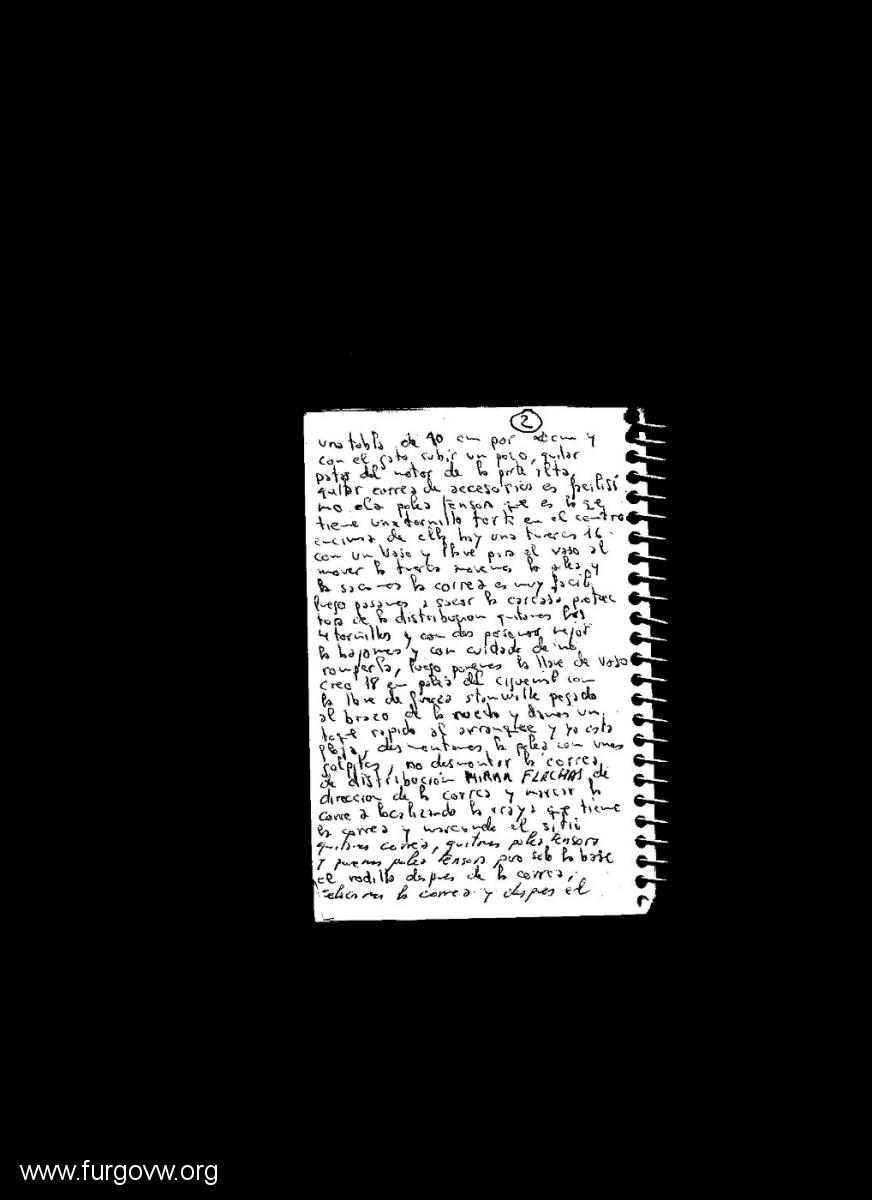 2
una tabla de 40 cm por 20 cm y
con el gato subir un poco, quitar
patas del motor de la parte alta,
quitar correa de accesorios es facilisi
mo la polea tensora que es la que
tiene una tornillo torx en el centro
encima de ella hay una tuerca 16
con un vaso y llave para el vaso al
mover la tuerca movemos la polea y
la sacamos la correa es muy facil,
luego pasamos a sacar la carcasa protec
tora de la distribucion quitamos los
4 tornillos y con dos personas mejor
la bajamos y con cuidado de no
romperla, luego ponemos la llave de vaso
creo 18 en polea del cigueñal con
la llave de fuerza stanwille pegada
al brazo de la rueda y damos un
toque rapido al arranque y ya esta
floja, desmontamos la polea con unos
golpitos, no desmontar la correa
de distribución MIRAR FLECHAS de
direccion de la correa y marcar la
correa localizando la raya que tiene
la correa y marcando el sitio
quitamos correa, quitamos polea tensora
y ponemos polea tensora pero solo la base
el rodillo despues de la correa,
la correa y despues el
www.furgovw.org